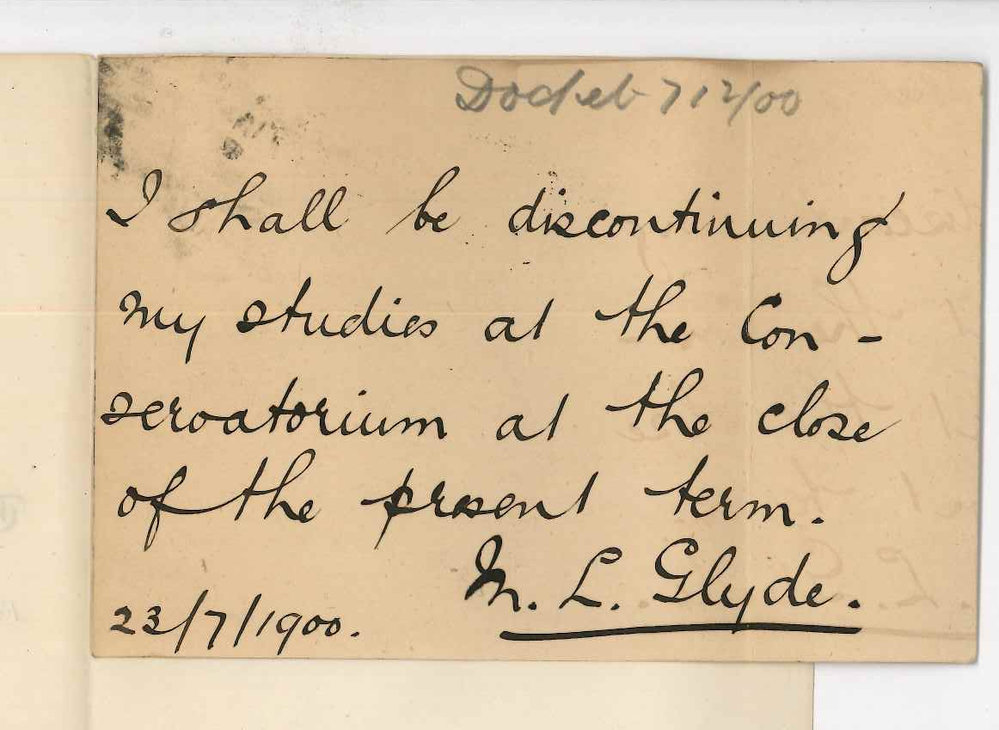 Docket 712/00
I shall be discontinuing
my studies at the Con-
servatorium at the close
of the present term.
M. L. Glyde.
23/7/1900.